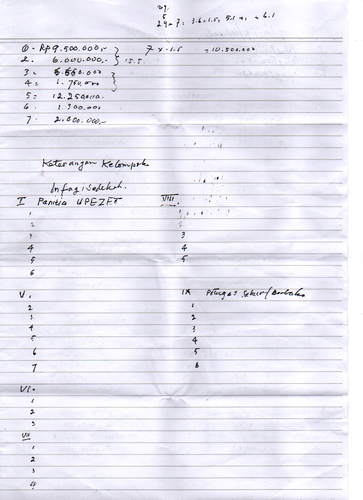 29
5
24 + 7 = 3.6 + 1.5 = 5.1 + 1 = 6.1
① - Rp 9.500.000,-
7 x 1.5 = 10.500.000
2. 6.000.000,-
3 =
4 = 1.750.000
5 = 12.250.000.
6. 1.500.000
7. 2.000.000,-
Keterangan Kelompok
Infaq/Sedekah.
I Panitia UPEZET
1
2
3
4
5
6
VIII.
1
2
3
4
5
V.
2
3
4
5
6
7
IX Petugas
1
2
3
4
5
6
VI.
1
2
3
VII
1
2
3
4